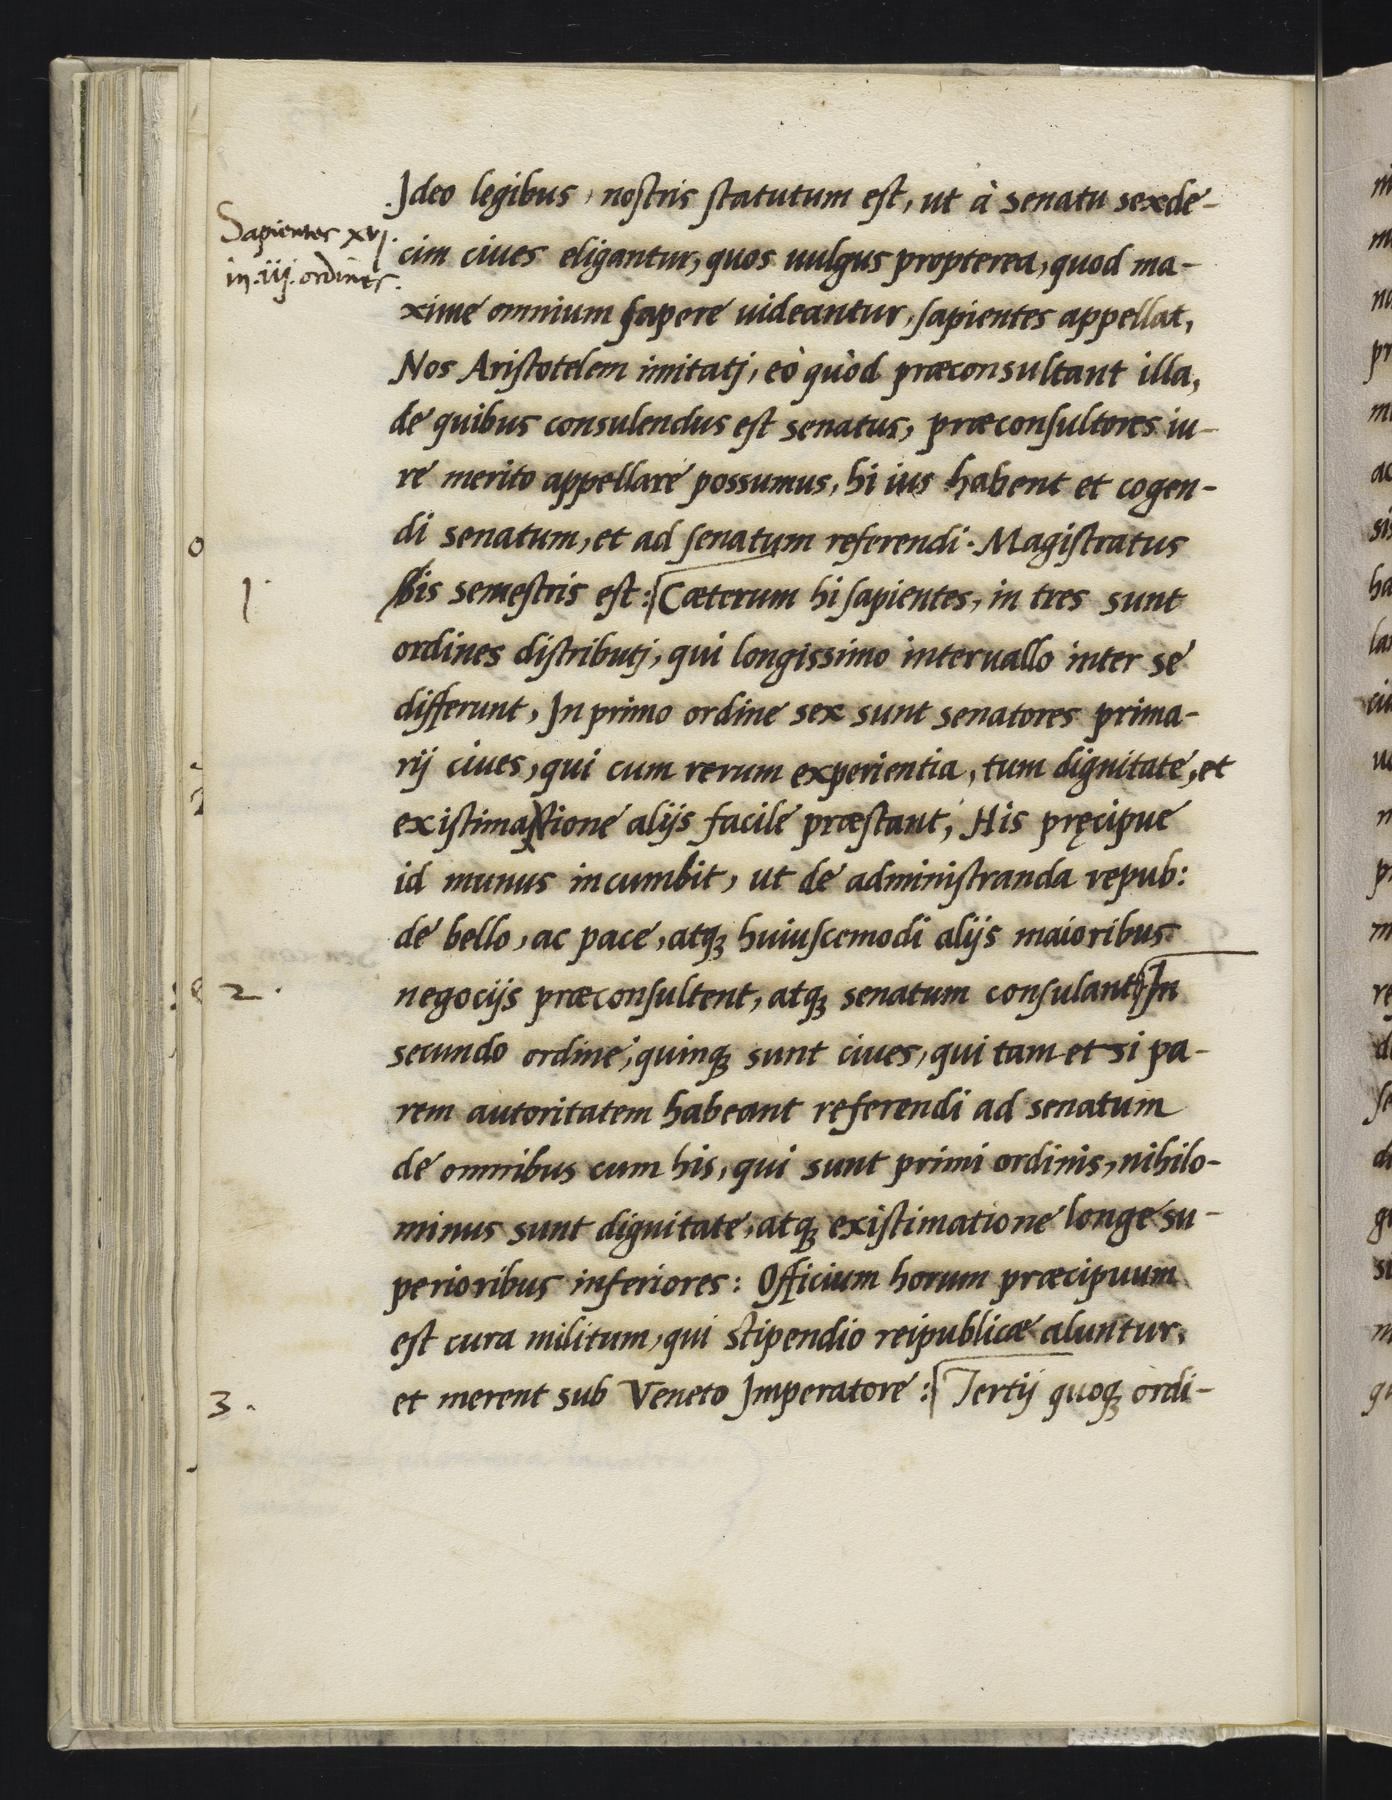 Sapientes xvj.
in .iij. ordines.
Ideo legibus, nostris statutum est, ut à senatu sexde-
cim ciues eligantur, quos uulgus propterea, quod ma-
xime omnium sapere uideantur, sapientes appellat,
Nos Aristotelem imitatj, eò quòd præconsultant illa,
de quibus consulendus est senatus, præconsultores iu-
re merito appellare possumus, hi ius habent et cogen-
di senatum, et ad senatum referendi. Magistratus
1.
bis semestris est: Cæterum hi sapientes, in tres sunt
ordines distributj, qui longissimo interuallo inter se
differunt, In primo ordine sex sunt senatores prima-
rij ciues, qui cum rerum experientia, tum dignitate, et
existimatione alijs facile præstant, His pręcipue
id munus incumbit, ut de administranda repub:
de bello, ac pace, atq; huiuscemodi alijs maioribus
2.
negocijs præconsultent, atq; senatum consulant, In
secundo ordine, quinq; sunt ciues, qui tam et si pa-
rem autoritatem habeant referendi ad senatum
de omnibus cum his, qui sunt primi ordinis, nihilo-
minus sunt dignitate, atq; existimatione longe su-
perioribus inferiores: Officium horum præcipuum
est cura militum, qui stipendio reipublicæ aluntur,
3.
et merent sub Veneto Imperatore: Tertij quoq; ordi-